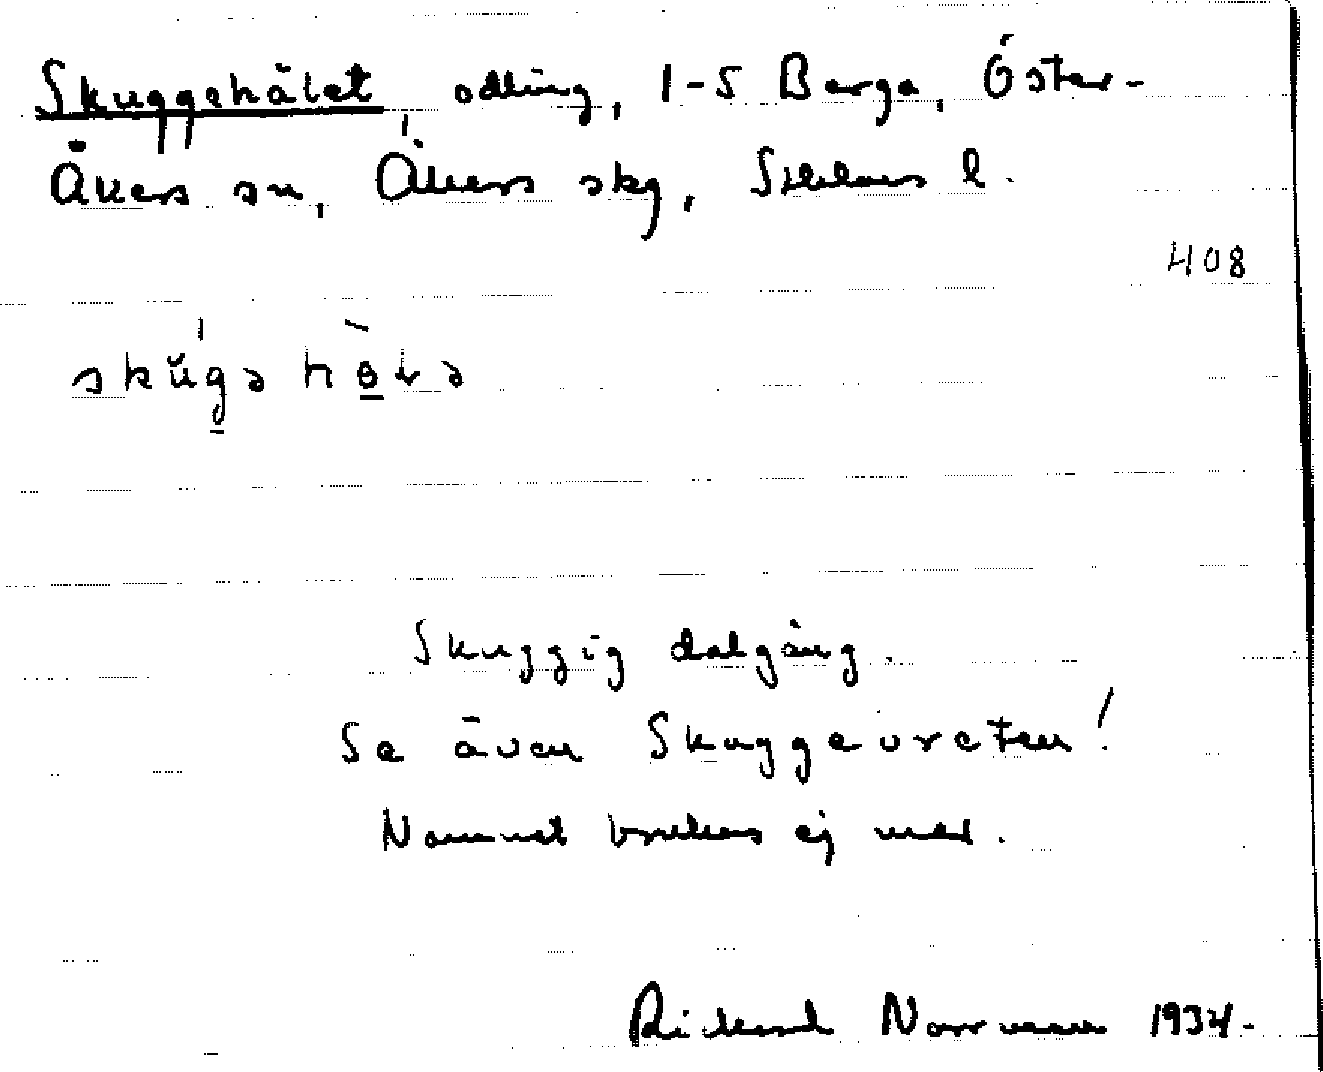 Skuggehålet odling, 1-5 Berga, Öster-
Åkers sn, Åkers skg, Sthlms l.
408
Skuggig dalgång.
Se även Skuggevreten!
Namnet brukas ej med.
Rickard Norrman 1934.